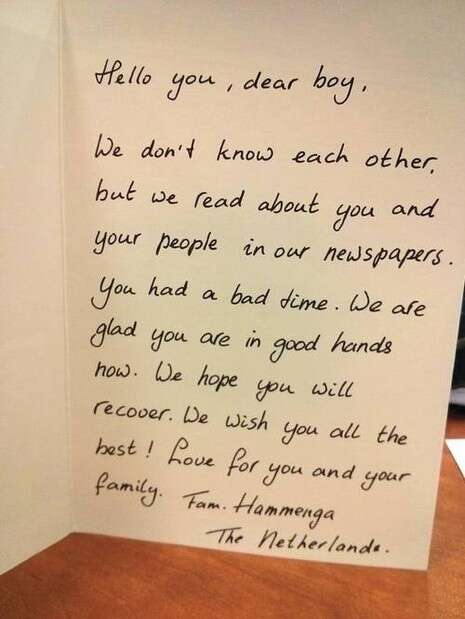 Hello you, dear boy,
We don't know each other,
but we read about you and
your people in our newspapers.
You had a bad time. We are
glad you are in good hands
now. We hope you will
recover. We wish you all the
best! Love for you and your
family. Fam. Hammenga
The Netherlands.